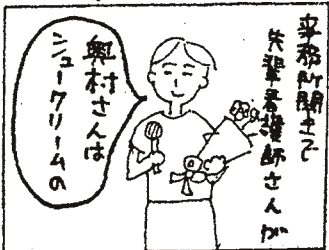 事務所開きで
先輩看護師さんが
奥村さんは
シュークリームの